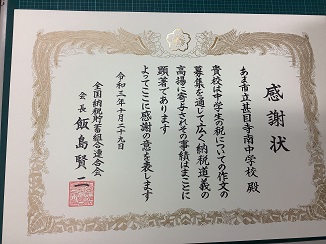 感謝状
あま市立甚目寺南中学校 殿
貴校は中学生の税についての作文の
募集を通じて広く納税道義の
高揚に寄与されその事績はまことに
顕著であります
よってここに感謝の意を表します
令和三年十月二十九日
全国納税貯蓄組合連合会
会長 飯島賢二